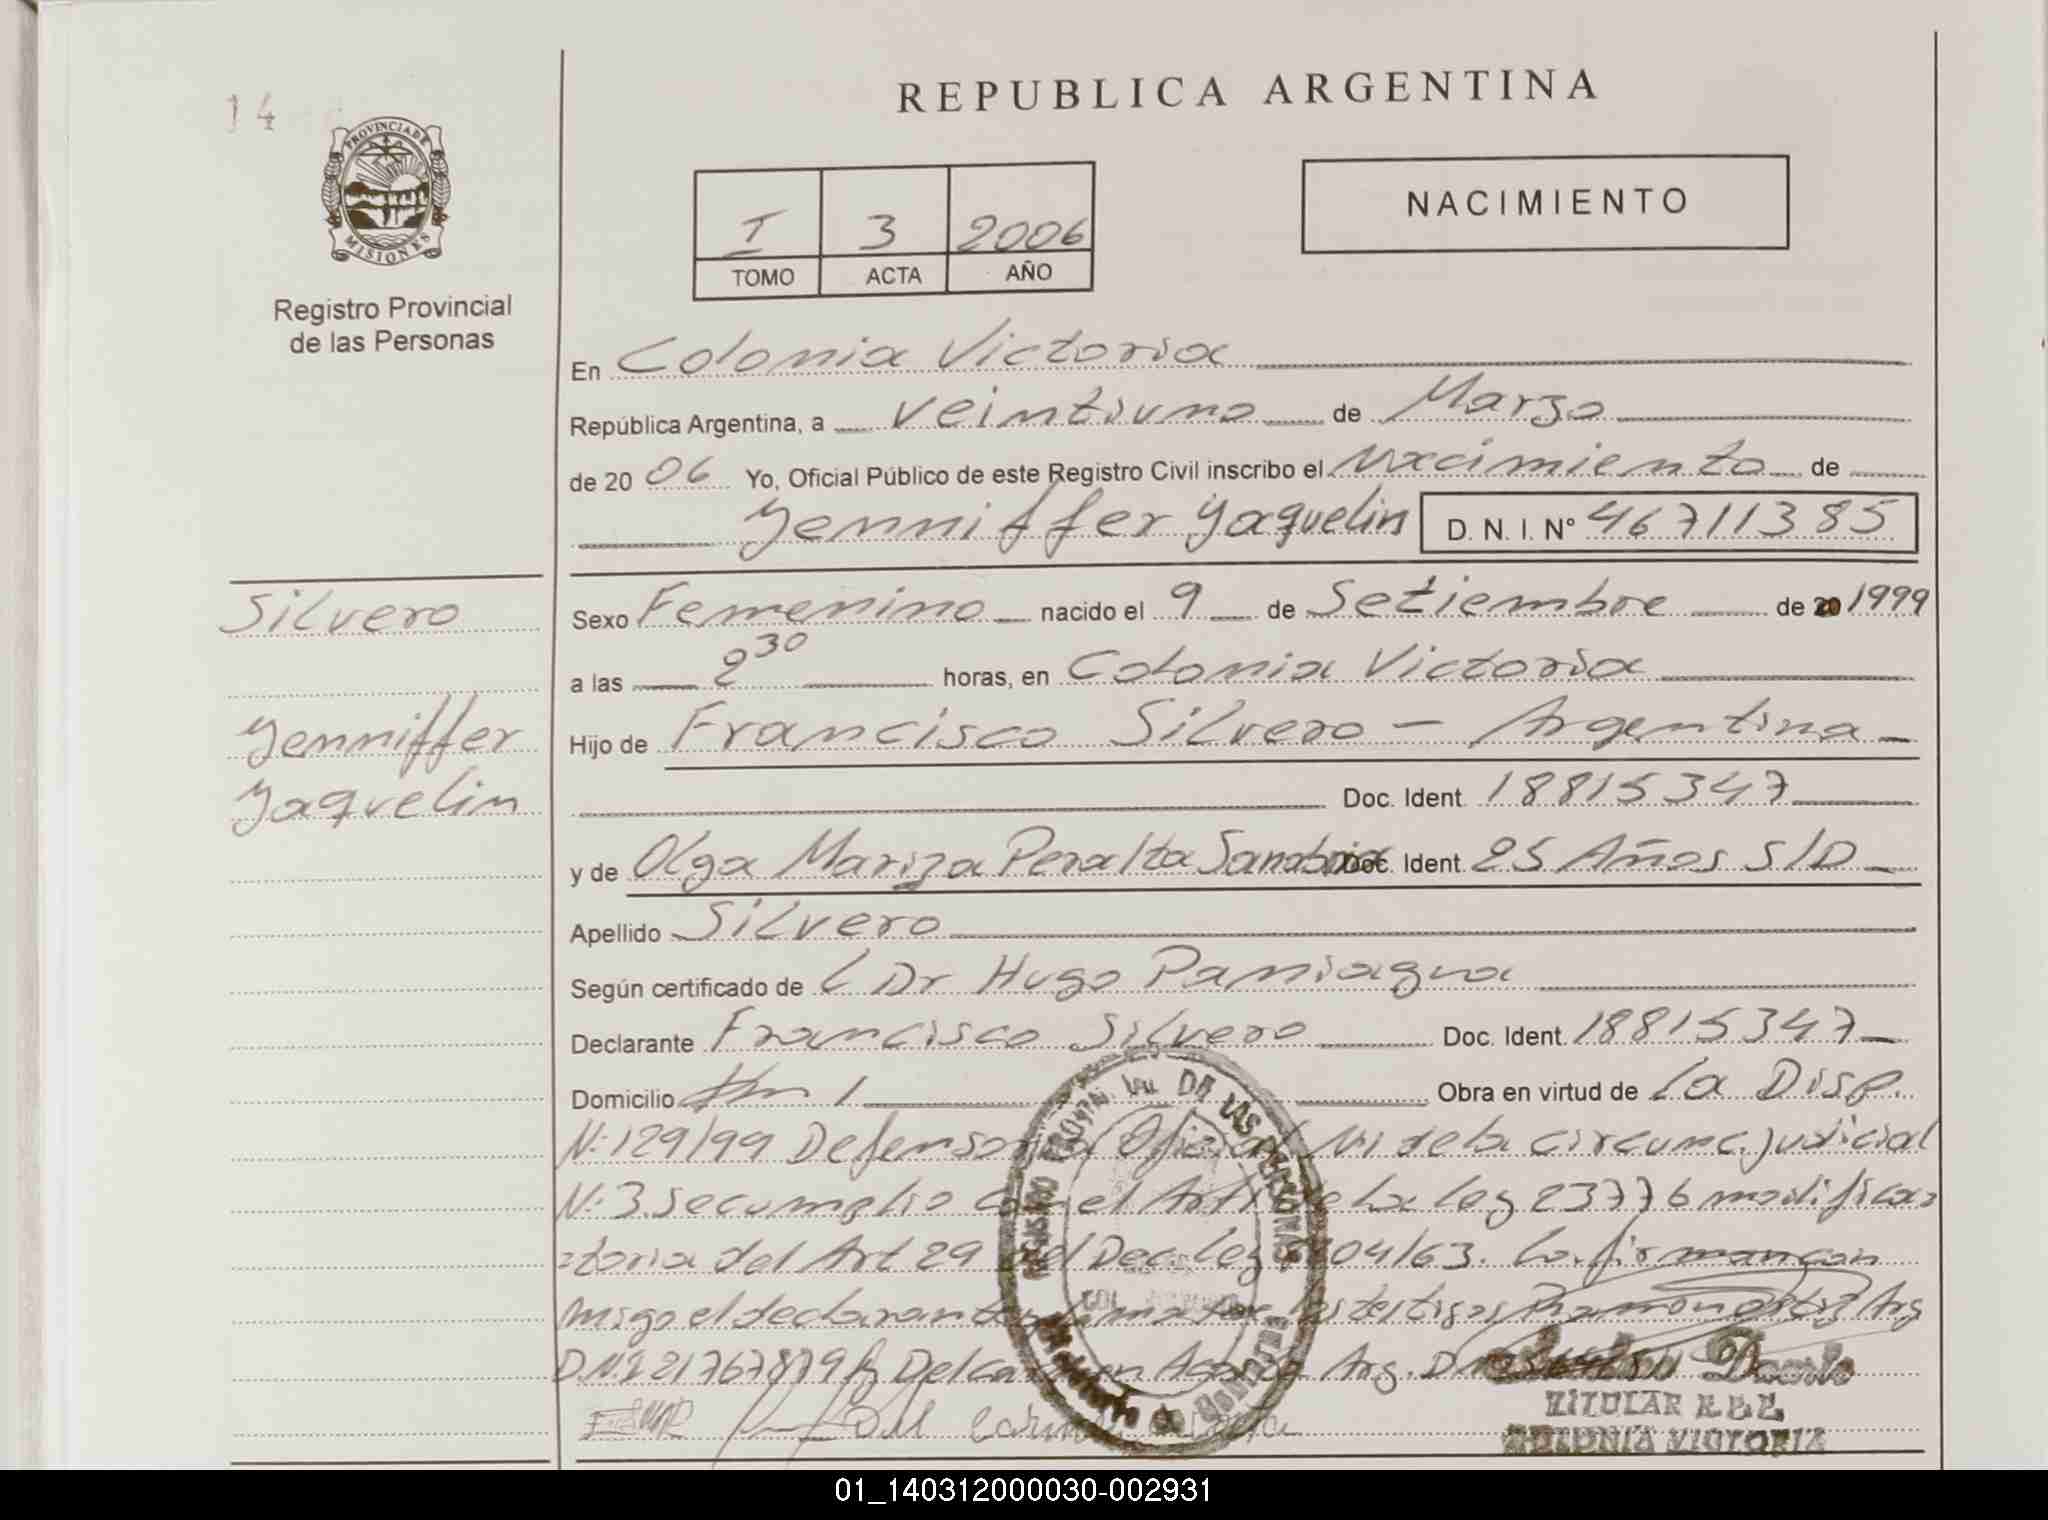 14
PROVINCIA DE
MISIONES
Registro Provincial
de las Personas
REPUBLICA ARGENTINA
I 3 2006
TOMO ACTA AÑO
NACIMIENTO
En Colonia Victoria
República Argentina, a veintiuno de Marzo
de 20 06 Yo, Oficial Público de este Registro Civil inscribo el Nacimiento de
Yenniffer Yaquelin D. N. I. Nº 46711385
Silvero
Yenniffer
Yaquelin
Sexo Femenino nacido el 9 de Setiembre de 20 1999
a las 2 30 horas, en Colonia Victoria
Hijo de Francisco Silvero - Argentina
Doc. Ident. 18815347
y de Olga Mariza Peralta Sanabria Doc. Ident. 25 Años S/D
Apellido Silvero
Según certificado de Dr Hugo Paniagua
Declarante Francisco Silvero Doc. Ident. 18815347
Domicilio Km 1 Obra en virtud de La Disp.
N: 129/99 Defensoria Oficial de la circunc. judicial
N: 3. Se cumplio con el Art 1 de La Ley 23776 modifica=
=toria del Art 29 del Dec. Ley 8204/63. La firman con
migo el declarante los testigos Ramon Arg
D.N.I 21767879 Del carmen Arg.
Del Carmen
REGISTRO DE LAS PERSONAS
Ministerio de Gobierno
TITULAR
COLONIA VICTORIA
01_140312000030-002931